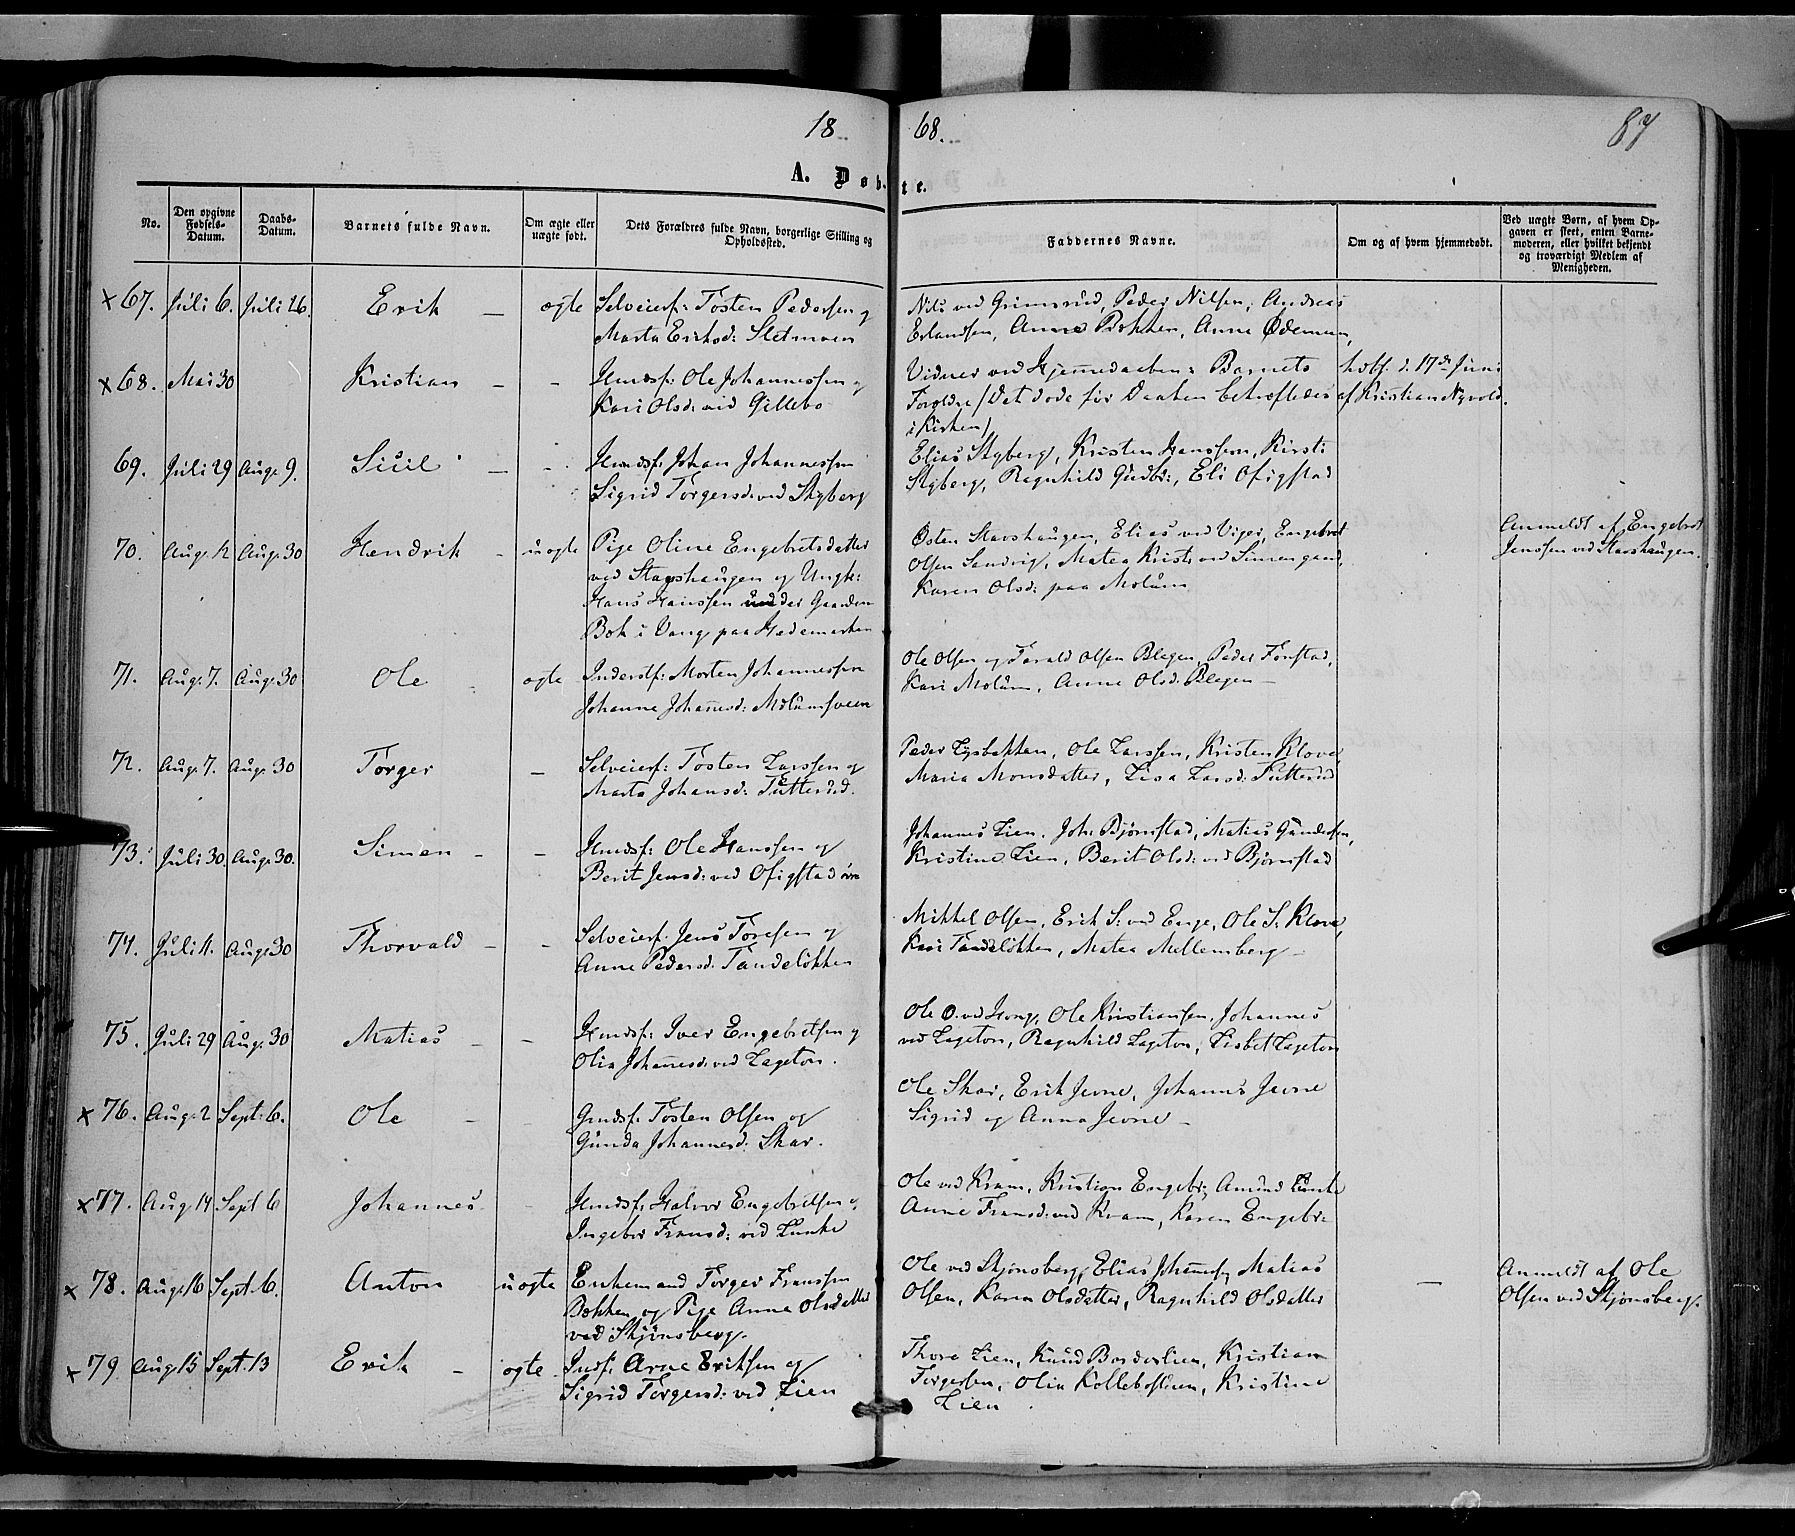 18
68.
87
A. Døbte.
No.
Den opgivne Fødsels-Datum.
Daabs-Datum.
Barnets fulde Navn.
Om ægte eller uægte født.
Dets Forældres fulde Navn, borgerlige Stilling og Opholdssted.
Faddernes Navne.
Om og af hvem hjemmedøbt.
Ved uægte Børn, af hvem Opgaven er skeet, enten Barnemoderen, eller hvilket bekjendt og troværdigt Medlem af Menigheden.
x 67. Juli 6. Juli 26. Erik — ægte Selveierf: Tosten Pedersen og
Marta Eriksd: Sletmoen
Nils ved Grimsrud, Peder Nilsen, Andreas
Erlandsen, Anne Bakken, Anne Ødemun,
x 68. Mai 30 Kristian - - Hmdsf: Ole Johannessen og
Kari Olsd: ved Gillebo
Vidner ved Hjemmedaaben: Barnets
Foreldre / Det døde før Daaben bekræftedes
i Kirken /
hdbt. d. 17de Juni
af Kristian Nyvold.
69. Juli 29 Aug. 9. Sicil - - Hmdsf: Johan Johannessen
Sigrid Torgersd: ved Skyberg
Elias Skyberg, Kristen Hanssen, Kirsti
Skyberg, Ragnhild Gudbr:, Eli Ofigstad
70. Aug. 12 Aug. 30 Hendrik - uægte Pige Oline Engebretsdatter
ved Stavshaugen og Ungk:
Hans Hanssen under Gaarden
Bok i Vang paa Hedemarken
Østen Stavshaugen, Elias ved Viger, Engebret
Olsen Sandvig, Matea Krist: ved Simengaard,
Karen Olsd: paa Molum
Anmeldt af Engebret
Jenssen ved Stavshaugen.
71. Aug. 7. Aug. 30 Ole - ægte Inderstf: Morten Johannessen
Johanne Johannesd: Molumsveen
Ole Olsen og Tarald Olsen Blegen, Peder Fonstad,
Kari Molum, Anne Olsd: Blegen —
72. Aug. 7. Aug. 30 Torger — Selveierf: Tosten Larssen og
Marta Johansd:
Peder Lysbakken, Ole Larssen, Kristen Klove,
Maria Monsdatter, Lisa Larsd:
73. Juli 30. Aug. 30. Simen - - Hmdsf: Ole Hanssen og
Berit Jensd: ved Ofigstad øvre
Johannes Lien, Joh: Bjørnstad, Matias Gundersen,
Kristine Lien, Berit Olsd: ved Bjørnstad
74. Juli 11. Aug. 30 Thorvald - - Selveierf: Jens Toresen og
Anne Pedersd: Tandeløkken
Mikkel Olsen, Erik S: ved Enge, Ole S: Klove,
Kari Tandeløkken, Matea Mellemberg —
75. Juli 29 Aug. 30 Matias - - Hmdsf: Iver Engebretsen og
Olia Johannesd: ved Lageton.
Ole O. ved Hong, Ole Kristiansen, Johannes
ved Lageton, Ragnhild Lageton, Lisbet Lageton
x 76. Aug. 2 Sept. 6. Ole - - Gmdsf: Tosten Olsen og
Gunda Johannesd: Skar.
Ole Skar, Erik Jevne, Johannes Jevne
Sigrid og Anna Jevne —
x 77. Aug. 14 Sept. 6 Johannes - Hmdsf: Halvor Engebretsen og
Ingebor Fransd: ved Lunke
Ole ved Kram, Kristian Engebr:, Amund Lunke
Anne Fransd: ved Kram, Karen Engebr:
x 78. Aug. 16 Sept. 6. Anton uægte Enkemand Torger Franssen
Bakken og Pige Anne Olsdatter
ved Skjønsberg.
Ole ved Skjønsberg, Elias Johannes, Matias
Olsen, Karen Olsdatter, Ragnhild Olsdatter
—
Anmeldt af Ole
Olsen ved Skjønsberg.
x 79 Aug. 15 Sept. 13 Erik - ægte Indf: Arne Eriksen og
Sigrid Torgersd: ved Lien
Thore Lien, Knud Bordarlien, Kristian
Torgersen, Olia Kolleboslien, Kristine
Lien